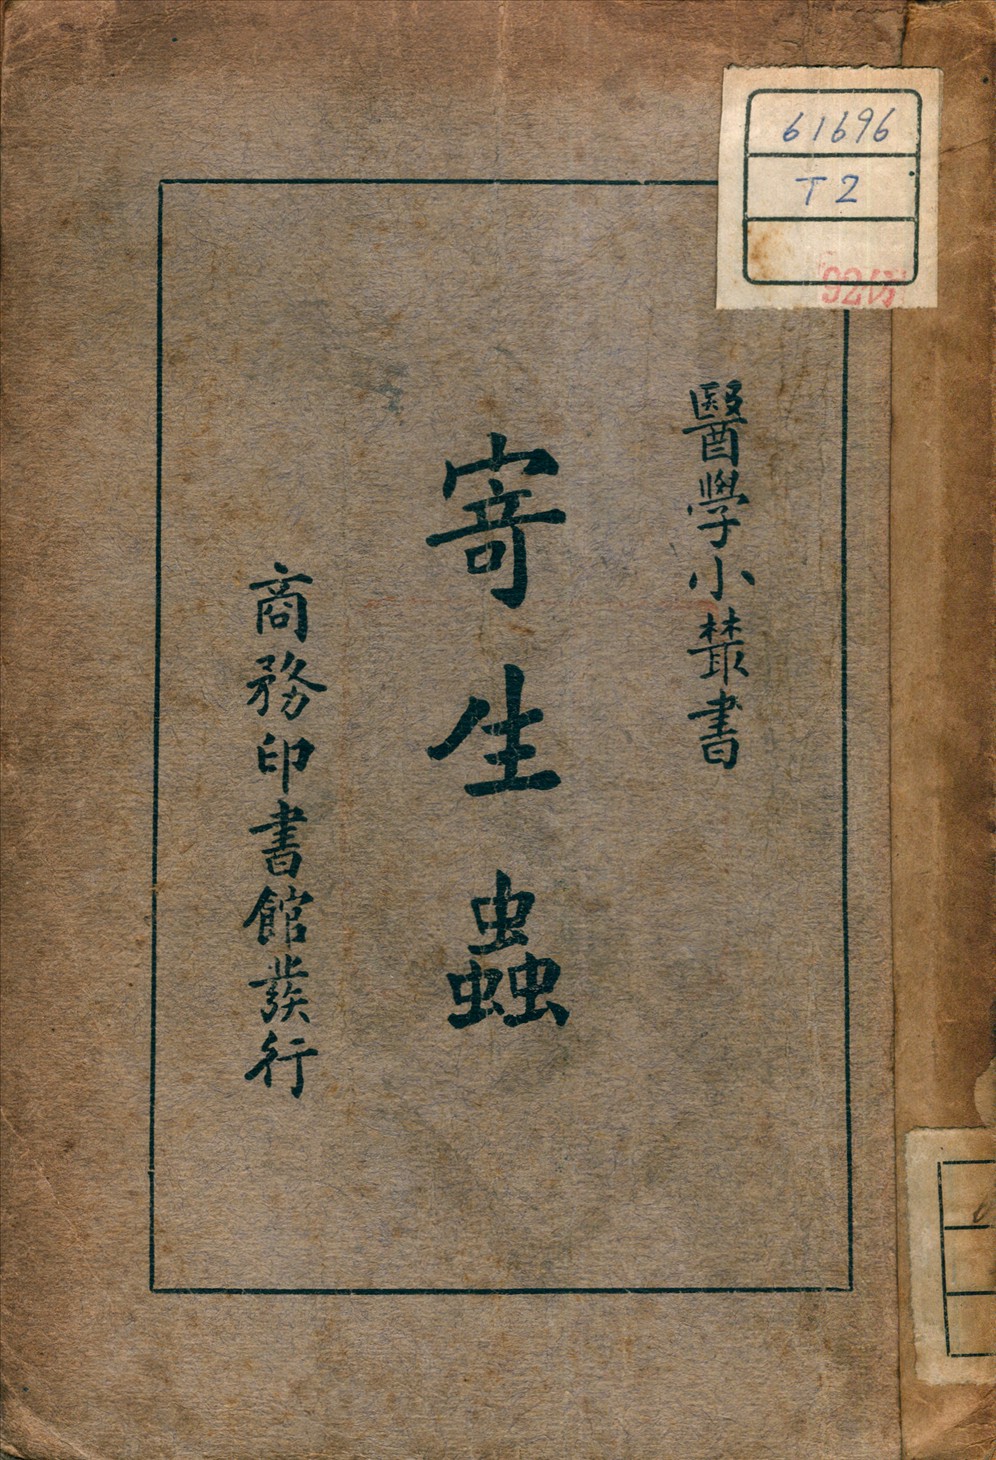 61696
T2
醫學小叢書
寄生蟲
商務印書館發行